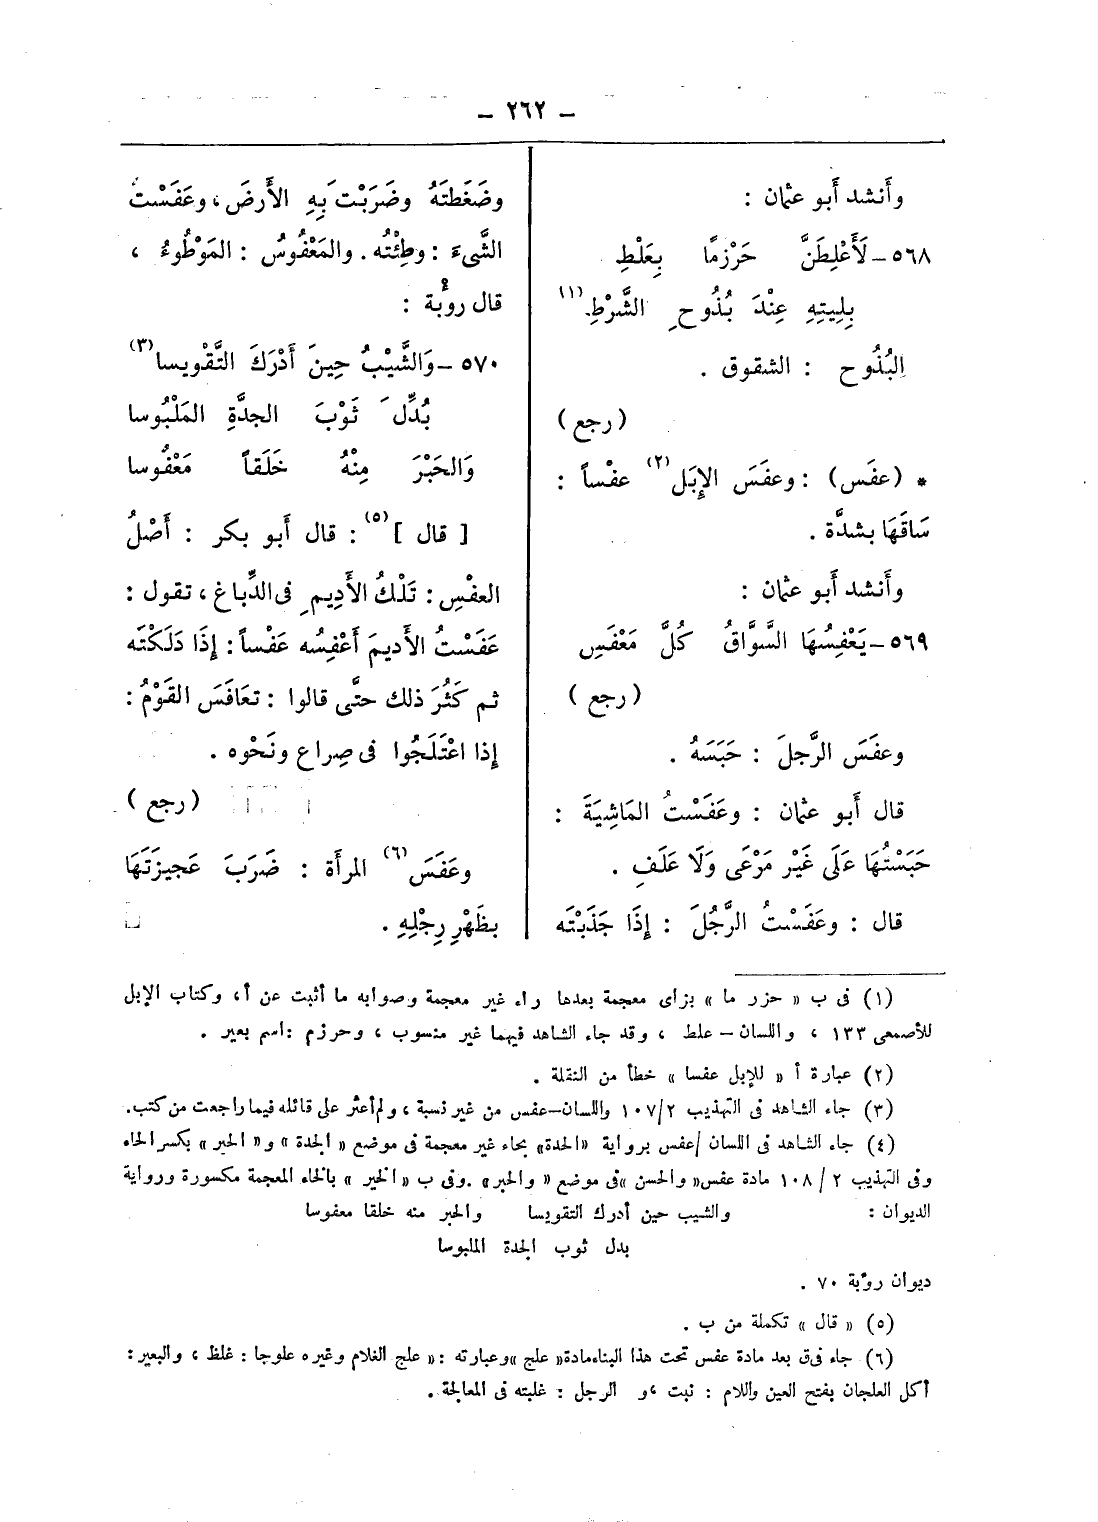 – ٢٦٢ –
وأَنشد أَبو عثمان :
٥٦٨ – لَأَعْلِطَنَّ حَرْزمًا بِعَلْطِ
بِلِيتِهِ عِنْدَ بُذُوحِ الشَّرْطِ(١)
البُذُوح : الشقوق .
(رجع)
* (عفَس) : وعفَسَ الإِبَل(٢) عفْساً :
سَاقَهَا بشدَّة .
وأَنشد أَبو عثمان :
٥٦٩ – يَعْفِسُهَا السَّوَّاقُ كُلَّ مَعْفَسِ
(رجع)
وعفَسَ الرَّجلَ : حَبَسَهُ .
قال أَبو عثمان : وعَفَسْتُ المَاشِيَةَ :
حَبَسْتُهَا عَلَى غَيْر مَرْعَى وَلَا عَلَفِ .
قال : وعَفَسْتُ الرَّجُلَ : إِذَا جَذَبْتَه
وضَغَطتَهُ وضَرَبْتَ بِهِ الأَرضَ ، وعَفَسْتُ
الشَّىءَ : وطِئْتُه . والمَعْفُوسُ : المَوْطُوءُ ،
قال رؤبة :
٥٧٠ – وَالشَّيْبُ حِينَ أَدْرَكَ التَّقْويسا(٣)
بُدِّلَ ثَوْبَ الجدَّةِ المَلْبُوسا
وَالحَبْرَ مِنْهُ خَلَقاً مَعْفُوسا
[ قال ](٥) : قال أَبو بكر : أَصْلُ
العفْسِ : تَلْكُ الأَدِيمِ فى الدِّباغ ، تقول :
عَفَسْتُ الأَديمَ أَعْفِسُه عَفْساً : إِذَا دَلَكْتَه
ثم كَثُرَ ذلك حتَّى قالوا : تعَافَسَ القَوْمُ :
إِذا اعْتَلَجُوا فى صِراع ونَحْوه .
(رجع)
وعَفَسَ(٦) المرأَة : ضَرَبَ عَجيزَتَهَا
بظَهْرِ رِجْلِهِ .
(١) فى ب « حزر ما » بزاى معجمة بعدها راء غير معجمة وصوابه ما أثبت عن أ ، وكتاب الإبل
للأصمعى ١٣٣ ، واللسان – علط ، وقد جاء الشاهد فيهما غير منسوب ، وحرزم : اسم بعير .
(٢) عبارة أ « للإبل عفسا » خطأ من النقلة .
(٣) جاء الشاهد فى التهذيب ١٠٧/٢ واللسان – عفس من غير نسبة ، ولم أعثر على قائله فيما راجعت من كتب .
(٤) جاء الشاهد فى اللسان / عفس برواية «الحدة» بحاء غير معجمة فى موضع « الجدة » و« الحبر » بكسر الحاء
وفى التهذيب ٢ / ١٠٨ مادة عفس« والحسن »فى موضع « والحبر» . وفى ب « الخير » بالخاء المعجمة مكسورة ورواية
الديوان : والشيب حين أدرك التقويسا والحبر منه خلقا معفوسا
بدل ثوب الجدة الملبوسا
ديوان رؤبة ٧٠ .
(٥) « قال » تكملة من ب .
(٦) جاء فى ق بعد مادة عفس تحت هذا البناء مادة« علج »وعبارته :« علج الغلام وغيره علوجا : غلظ ، والبعير :
أكل العلجان بفتح العين واللام : نبت ، و الرجل : غلبته فى المعالجة .